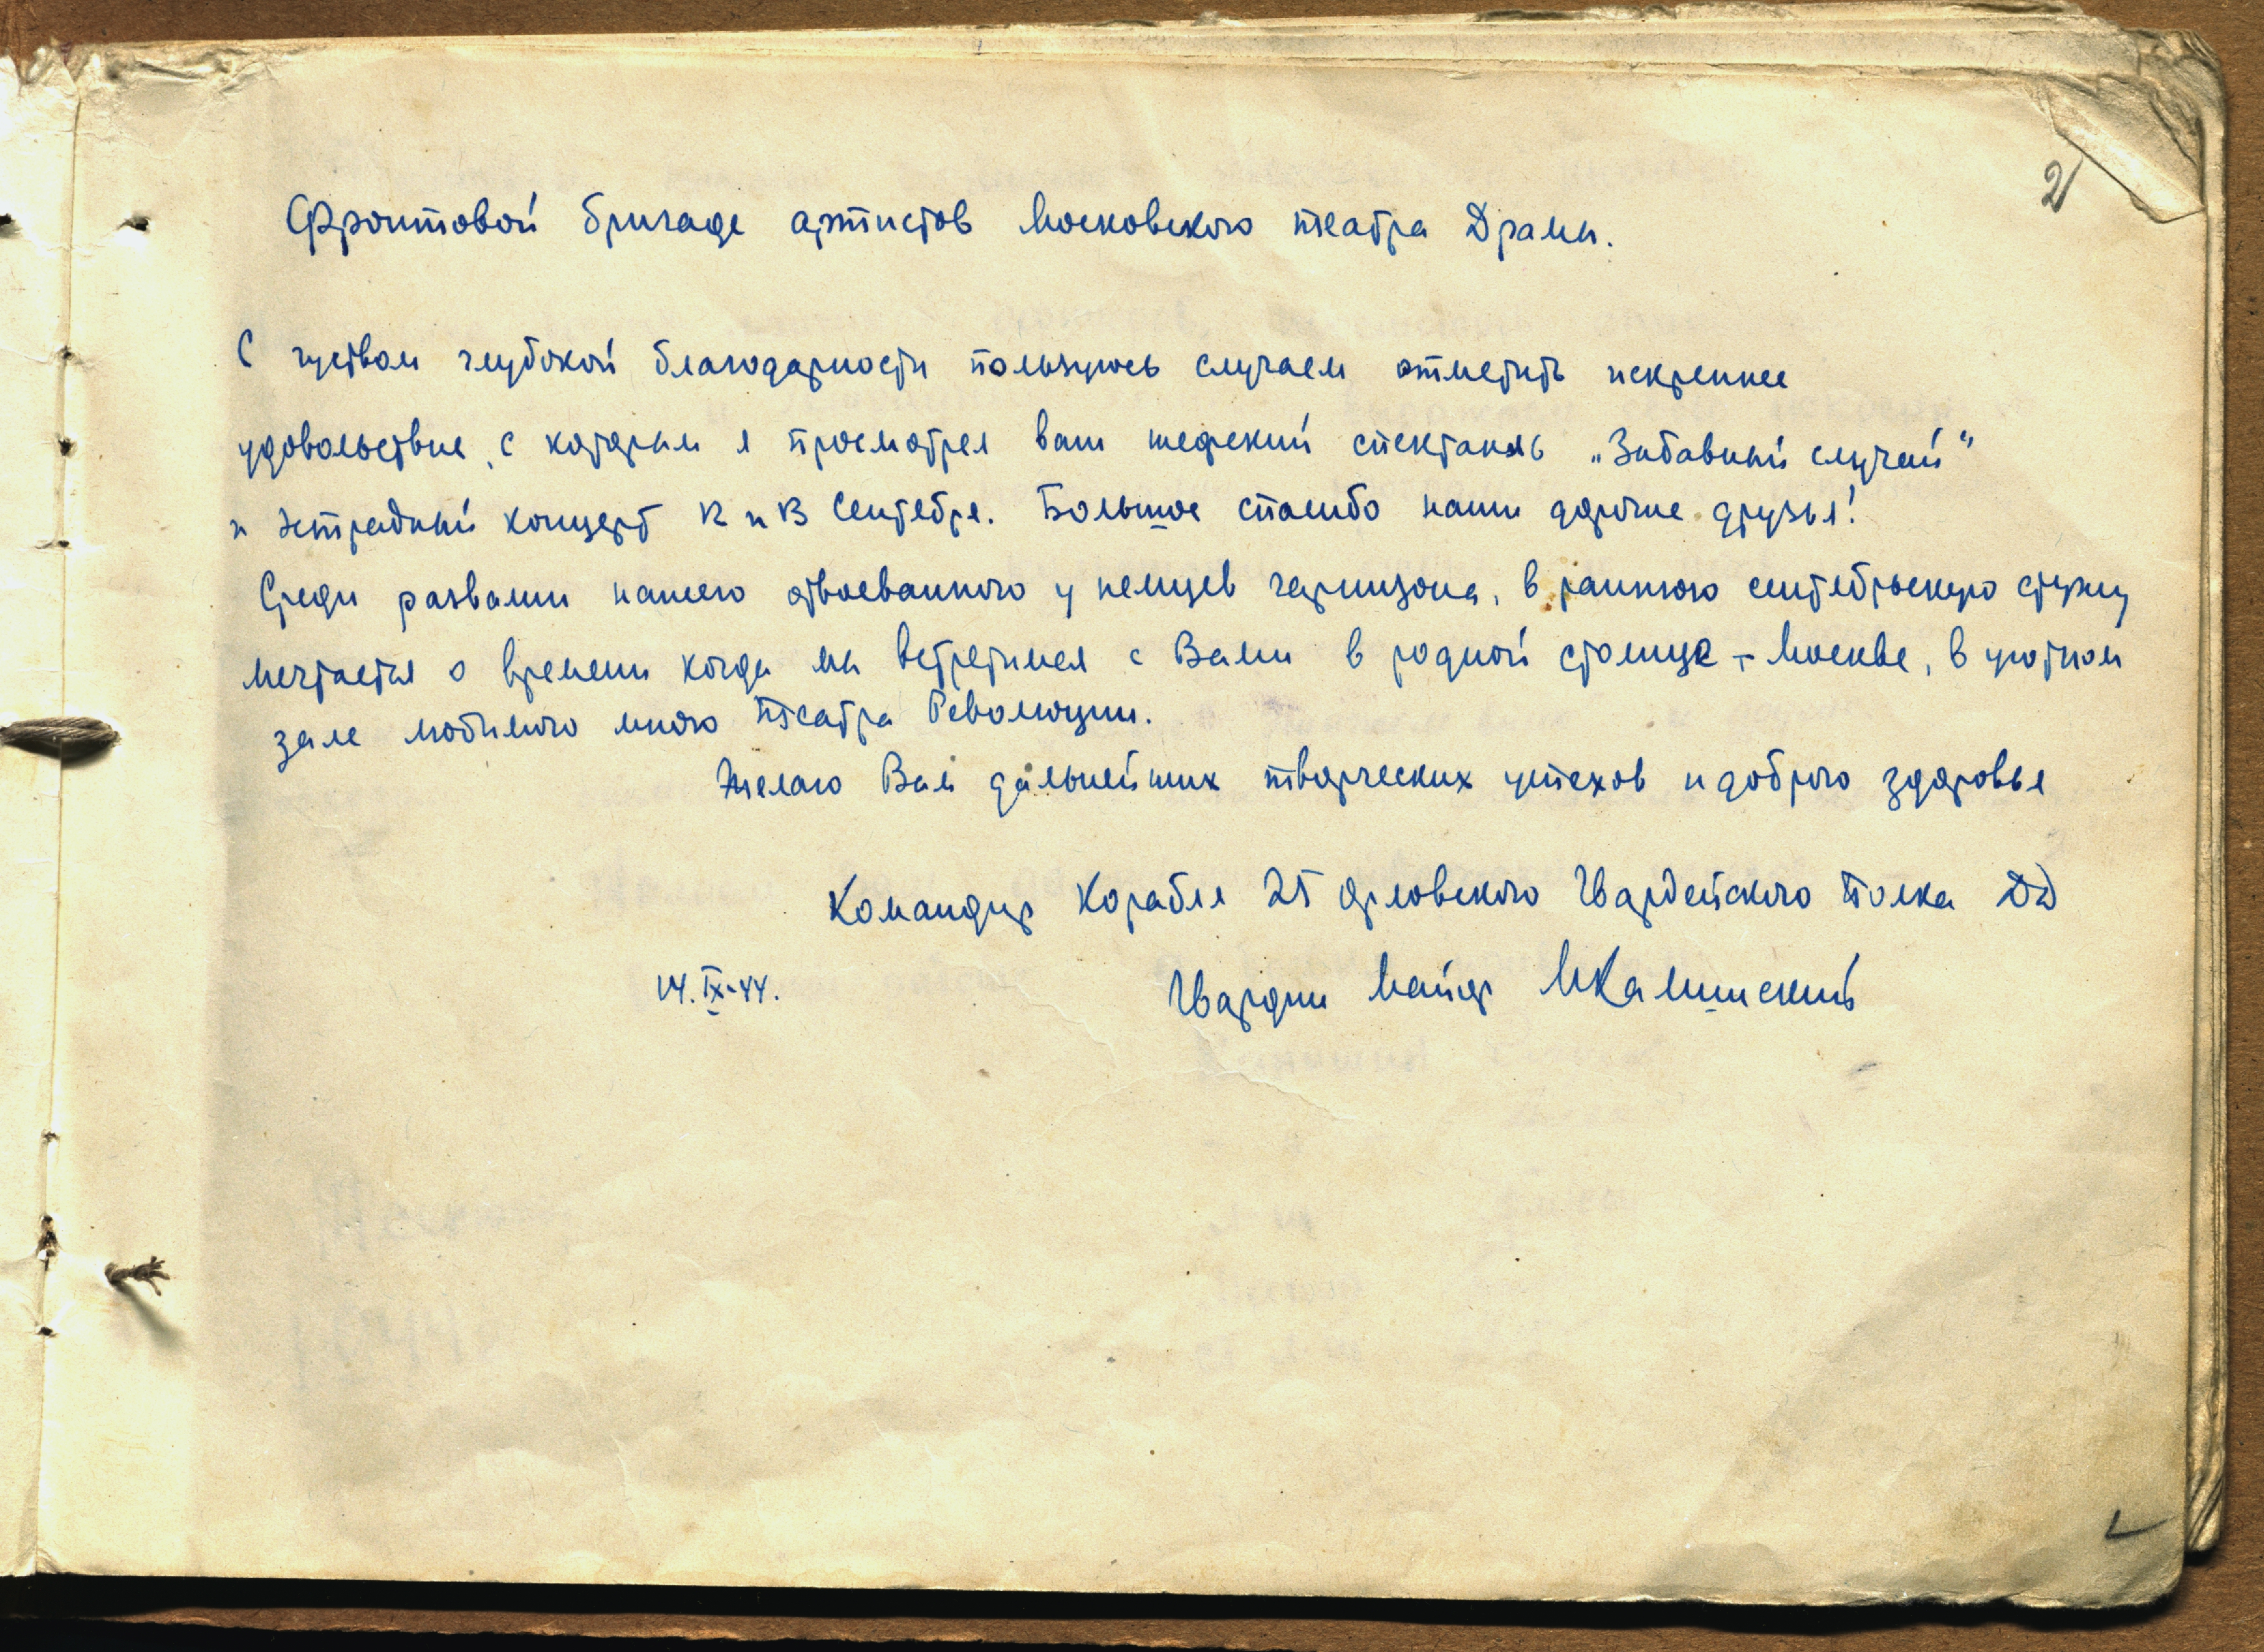 2
Фронтовой бригаде артистов Московского театра Драмы.
С чуством глубокой благодарности пользуюсь случаем отметить искреннее
удовольствие, с которым я просмотрел ваш шефский спектакль „Забавный случай“
и эстрадный концерт 12 и 13 Сентября. Большое спасибо наши дорогие друзья!
Среди развалин нашего отвоеванного у немцев гарнизона, в раннюю сентябрьскую стужу
мечтается о времени когда мы встретимся с Вами в родной столице - Москве, в уютном
зале любимого мною Театра Революции.
Желаю Вам дальнейших творческих успехов и доброго здоровья
Командир Корабля 25 Орловского Гвардейского Полка ДД
14.IX-44.
Гвардии Майор